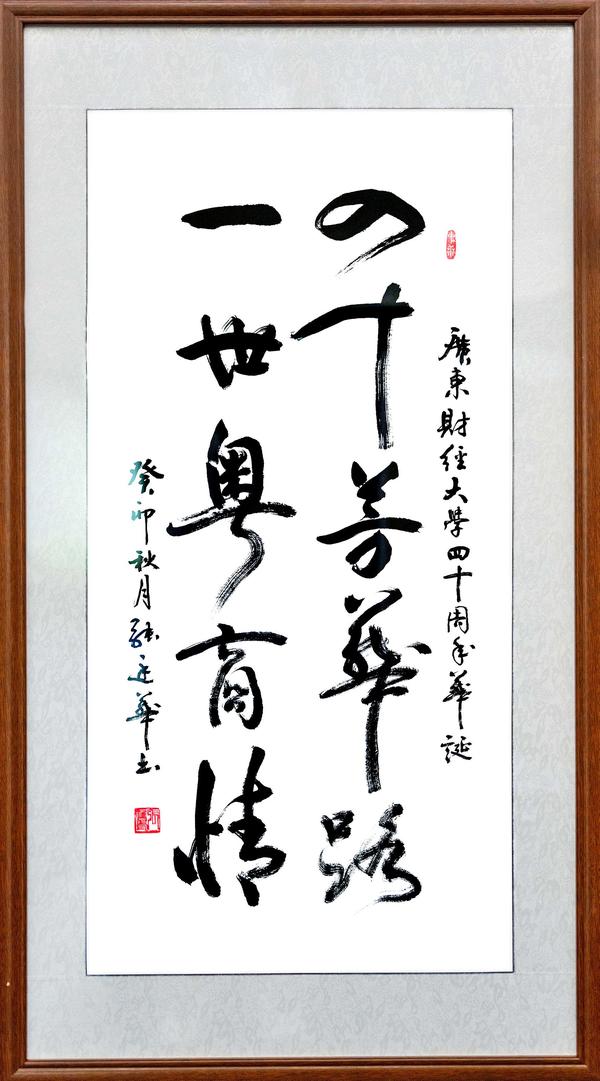 廣東財經大學四十周年華誕
四十芳華路
一世粵商情
癸卯秋月張廷華书